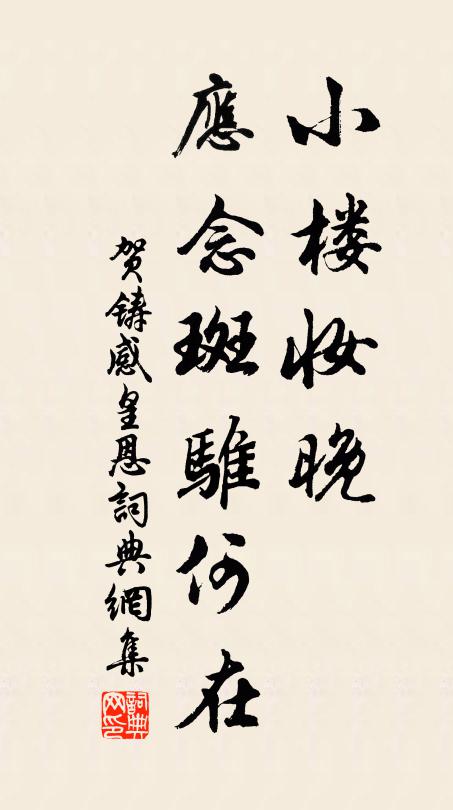 小楼妆晚
應念斑騅何在
贺鑄感皇恩詞典網集
詞典
网印